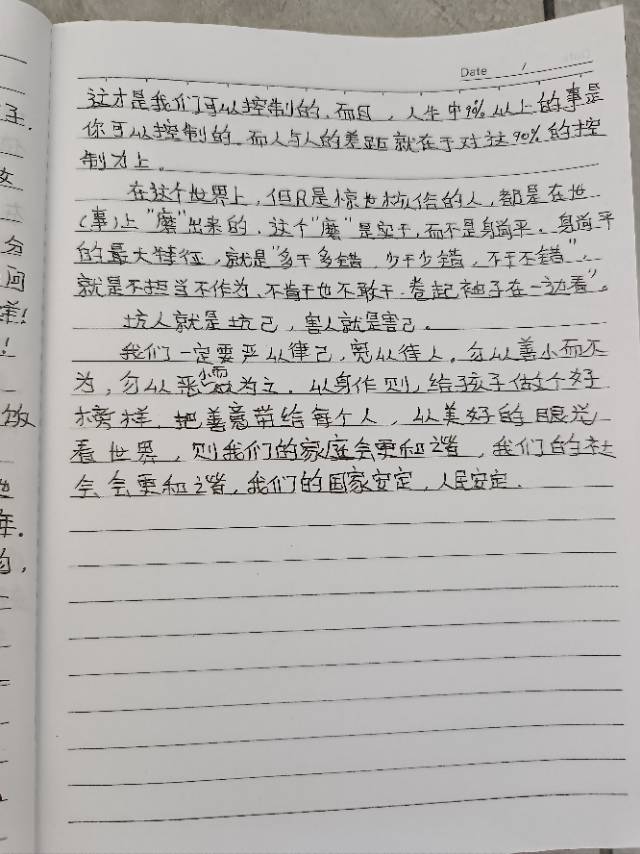 Date /
这才是我们可以控制的.而且，人生中90%以上的事是
你可以控制的.而人与人的差距就在于对这90%的控
制力上。
在这个世界上，但凡是惊世核俗的人，都是在世
(事)上"磨"出来的.这个"磨"是实干,而不是躺平.躺平
的最大特征，就是"多干多错，少干少错，不干不错"，
就是不担当不作为、不肯干也不敢干.卷起袖子在一边看"。
坑人就是坑己，害人就是害己。
我们一定要严以律己，宽以待人。勿以善小而不
为，勿以恶小而为之.以身作则,给孩子做个好
榜样.把善意带给每个人，以美好的眼光
看世界，则我们的家庭会更和谐，我们的社
会会更和谐,我们的国家安定，人民安定.
王.
女
台
间
样!
!
饭
年.
的,